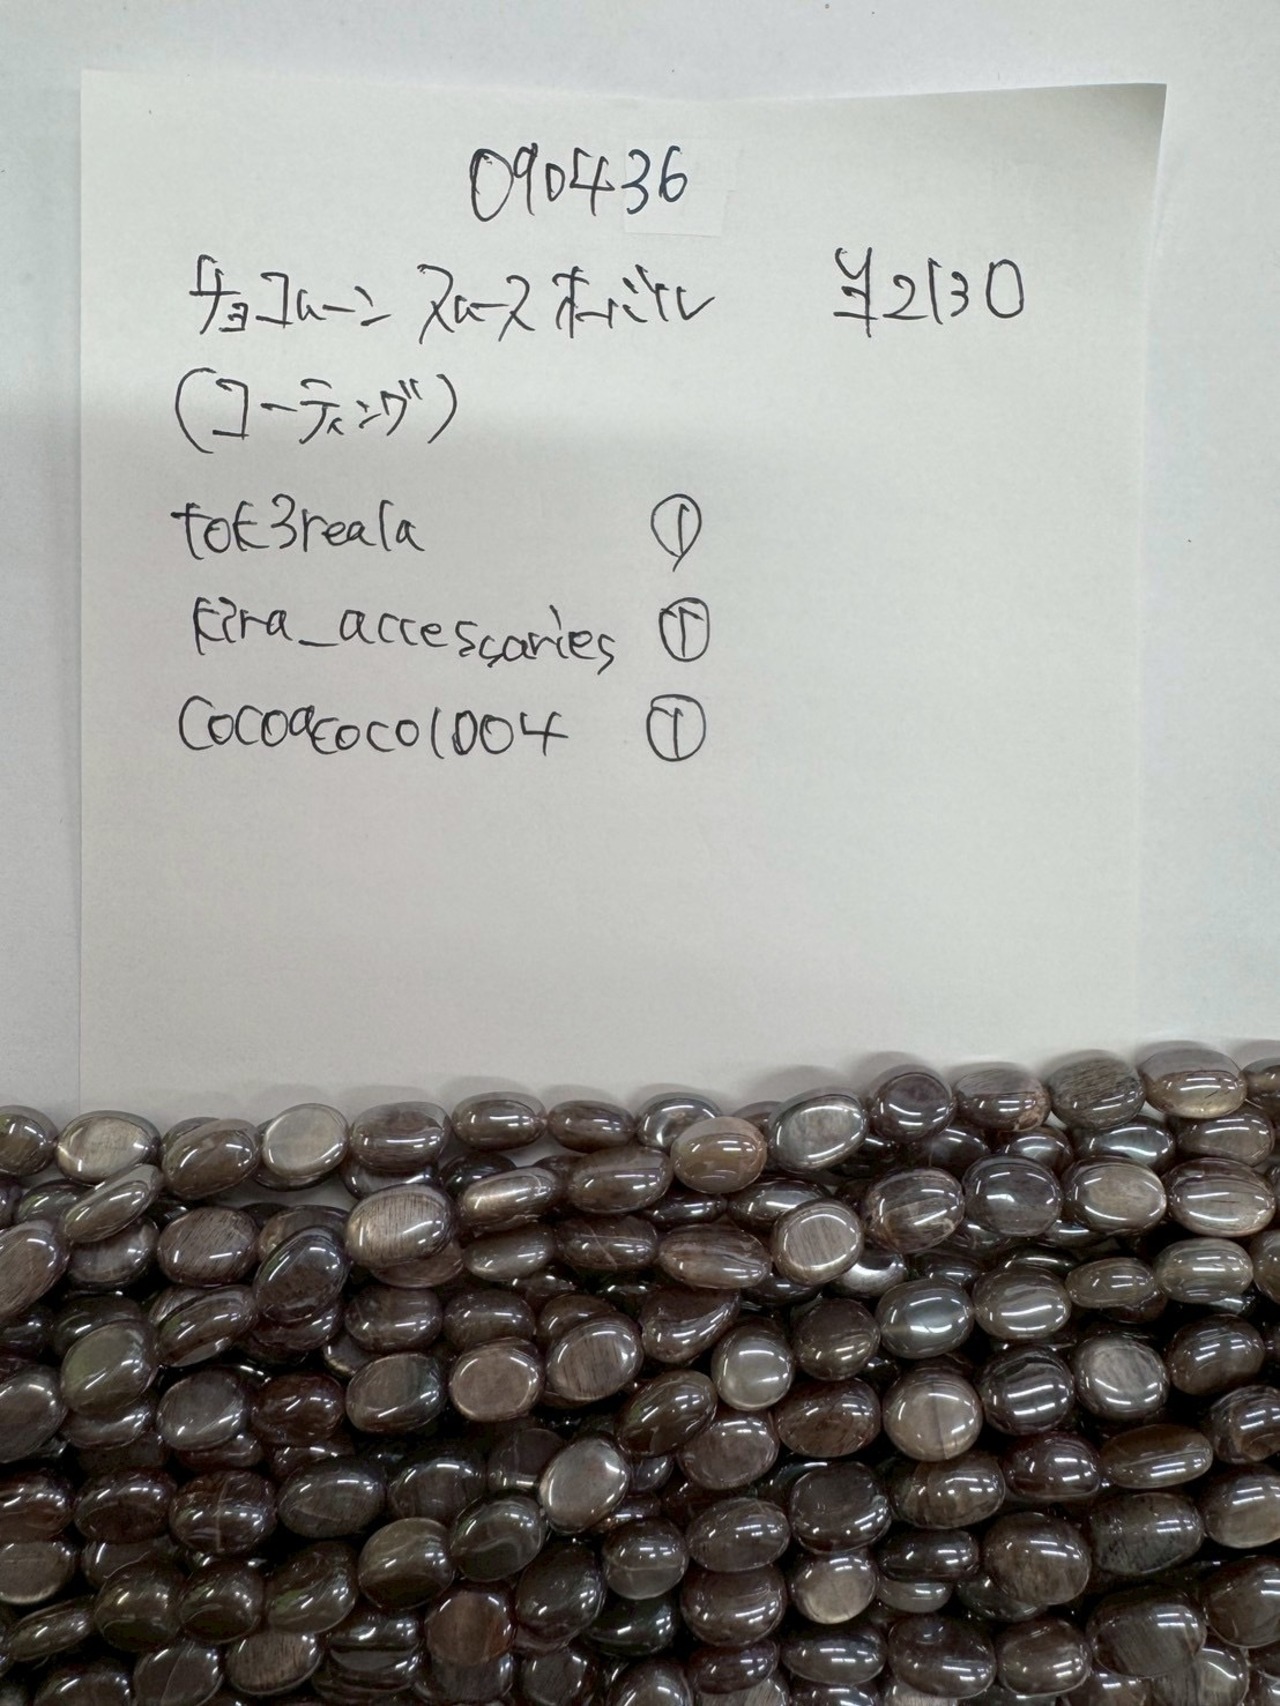 090436
チョコムーン スムースオーバル ¥2130
(コーティング)
tok3reala ①
kira_accessories ①
cocoacoco1004 ①